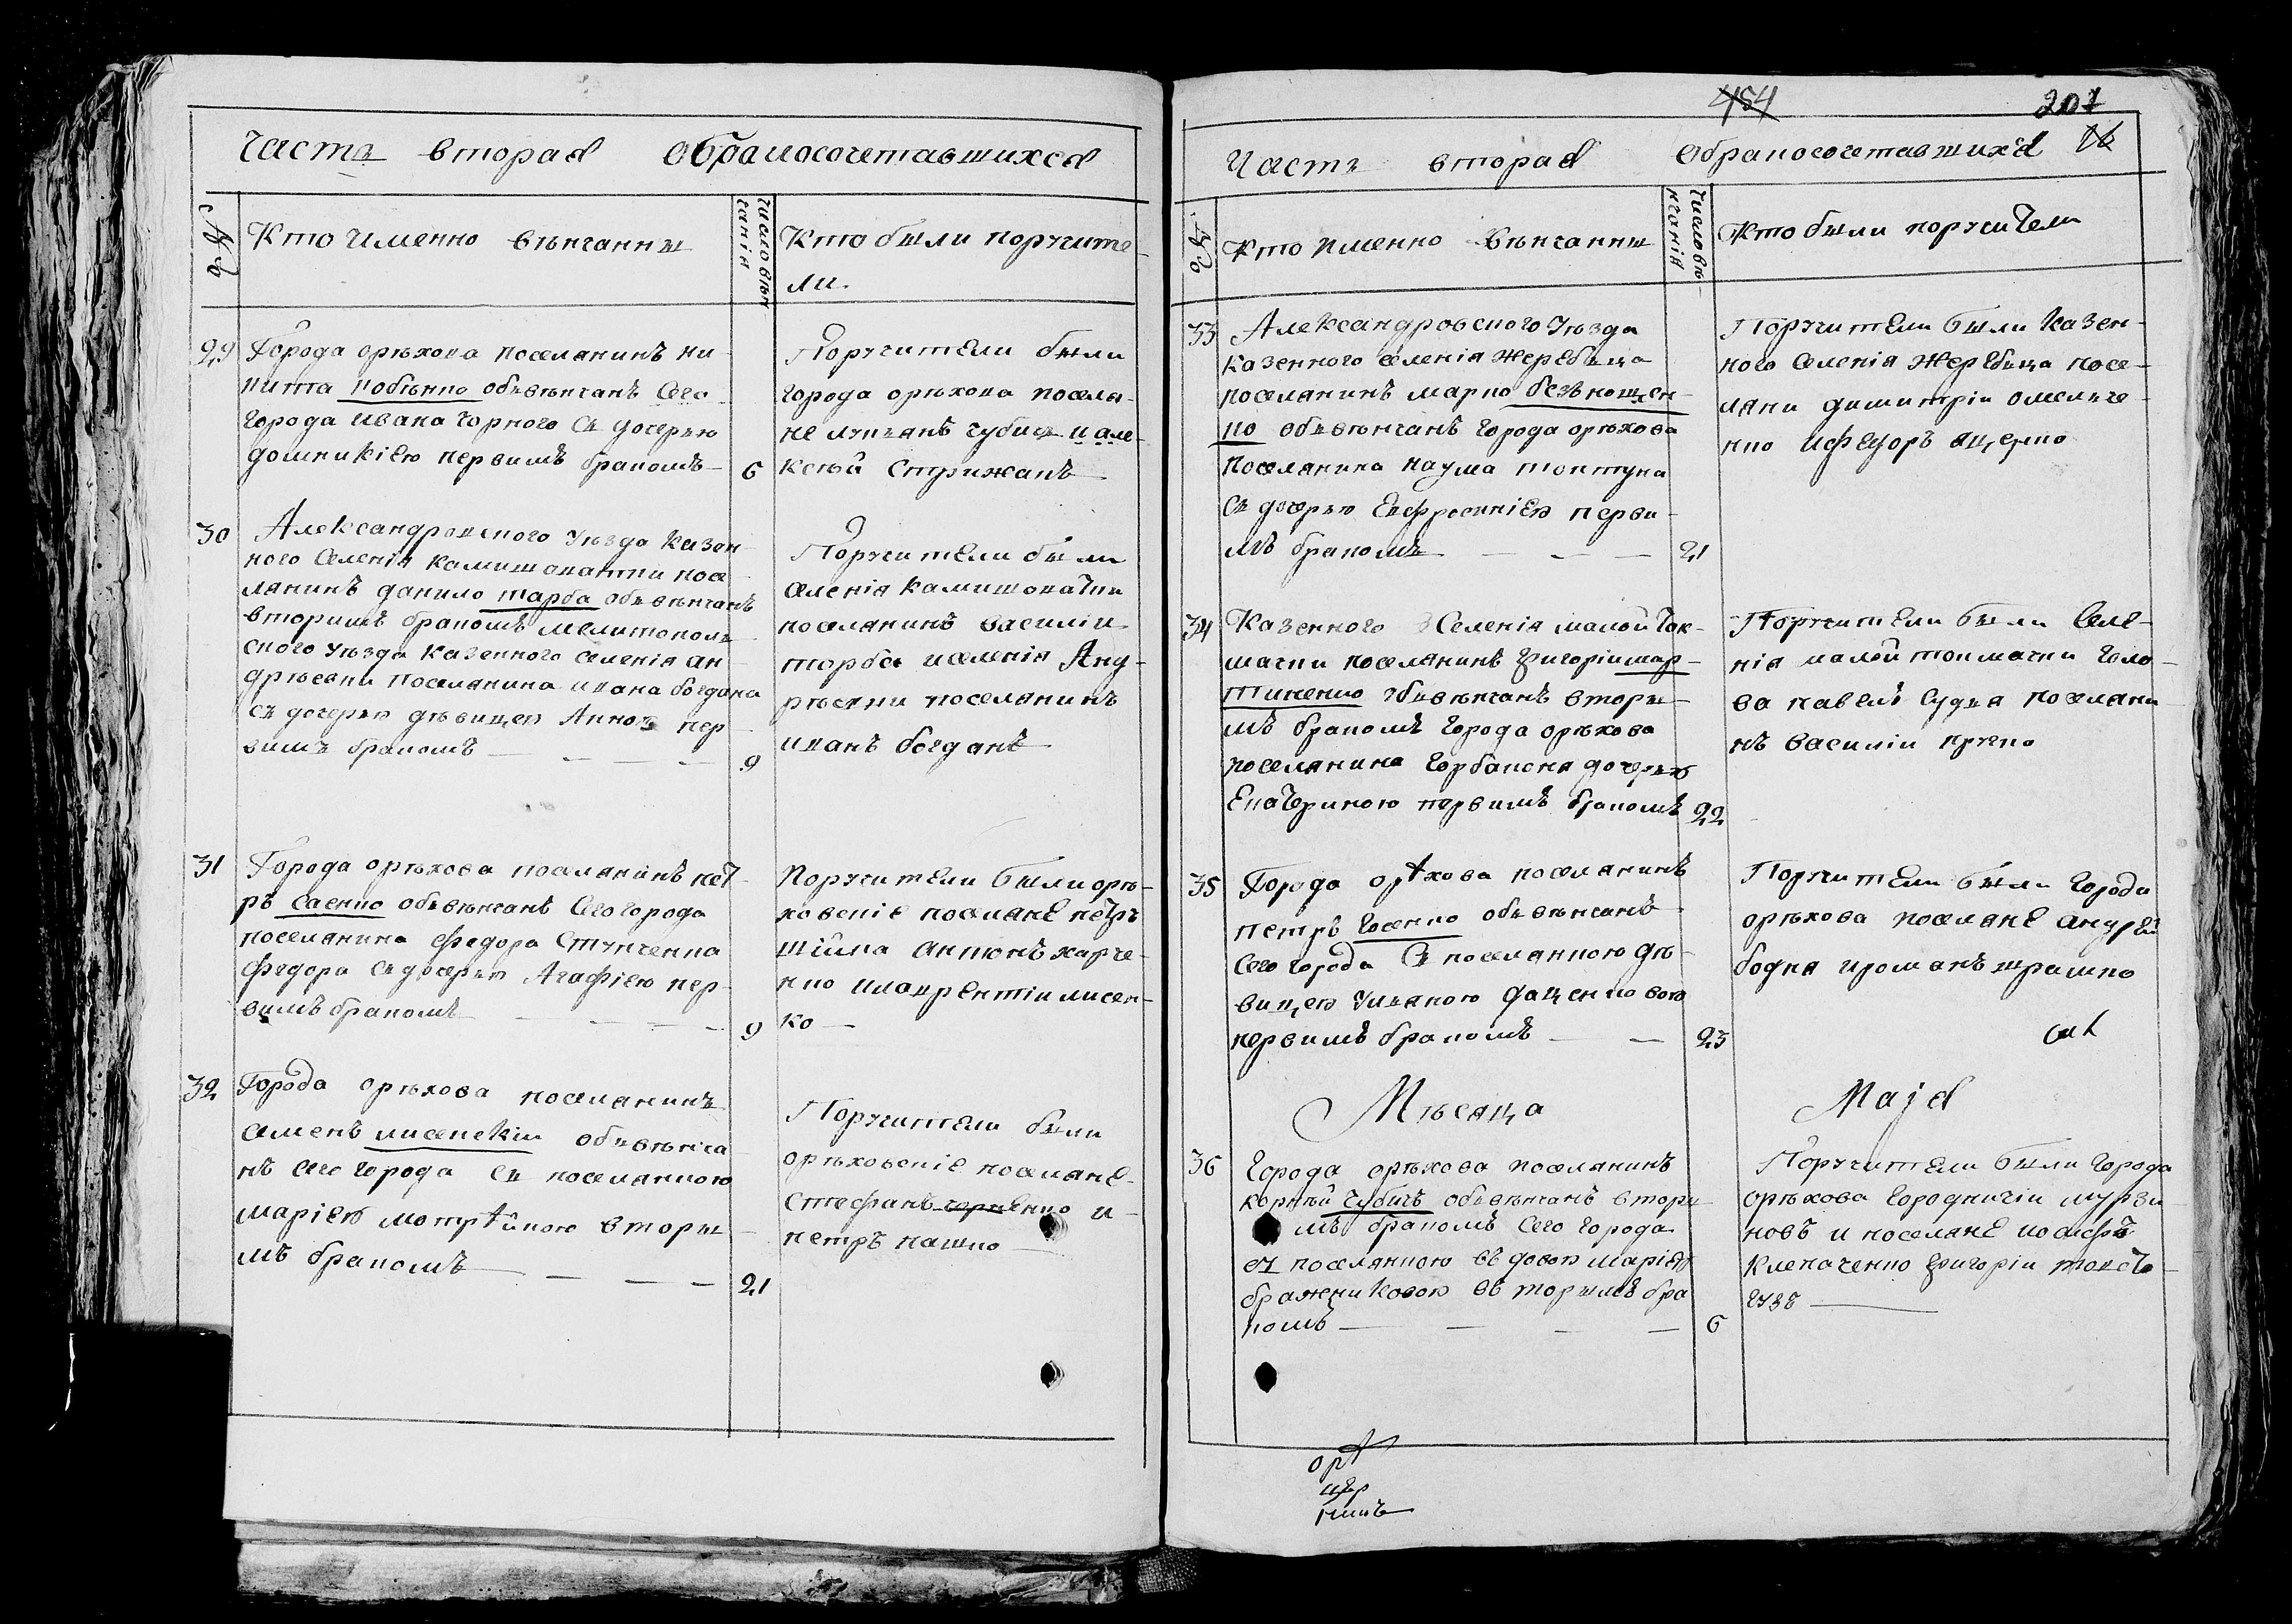 Часть вторая обракосочетавшихся
№
Кто именно вѣнчанны
число вѣн
чанія
Кто были поручите
ли.
29
Города орѣхова поселянинъ ни
кита кобѣнко обвѣнчанъ сего
города ивана чорного съ дочерью
домникіею первимъ бракомъ
6
Поручители были
города орѣхова поселя-
не лукианъ чубись и але-
ксѣй стрижакъ
30
Александровского уѣзда казен
ного селенія камишоватки посе
лянинъ данило тарба обвѣнчанъ
вторимъ бракомъ мелитополь
ского уѣзда казенного селенія ан
дрѣевки поселянина ивана богдана
съ дочерью дѣвицею Анною пер
вимъ бракомъ
9
Поручители были
селенія камишоватки
поселянинъ василіи
торба и селенія Анд-
рѣевки поселянинъ
иванъ богданъ
31
Города орѣхова поселянинъ пет-
ръ саенко обвѣнчанъ сего города
поселянина федора ступченка
федора съ дочерью Агафіею пер-
вимъ бракомъ
9
Поручители были орѣ-
ховскіе поселяне петръ
шійка антонъ харче-
нко и лаврентіи лисен-
ко
32
Города орѣхова поселянинъ
семенъ лисенскіи обвѣнча
нъ сего города съ поселянкою
маріею мотрѣйною вторы
мъ бракомъ
21
Поручители были
орѣховскіе поселяне
стефанъ черненко и
петръ пашко
454
207
Часть вторая обракосочетавшихся 16
№
Кто именно вѣнчанны
число вѣ
нчанія
Кто были поручители
33
Александровского уѣзда
казенного селенія жеребца
поселянинъ марко безъкощен-
ко обвѣнчанъ города орѣхова
поселянина наума топтуна
съ дочерью Евфросиніею перви
мъ бракомъ
21
Поручители были казен-
ного селенія жеребца посе-
ляни димитріи омельче-
нко и федоръ яценко
34
Казенного селенія малой ток-
мачки поселянинъ григоріи мар-
тиненко обвѣнчанъ вторы
мъ бракомъ города орѣхова
поселянина горбанена дочерью
Екатериною первимъ бракомъ
22
Поручители были селе-
нія малой токмачки голо-
ва павелъ судья поселяни
нъ василіи кучко
35
Города орѣхова поселянинъ
петръ госенко обвѣнчанъ
сего города съ поселянкою дѣ-
вицею ульяною доценковою
первимъ бракомъ
23
Поручители были города
орѣхова поселяне андрей
бодня и романъ шрамко
Мѣсяца
Маія
36
Города орѣхова поселянинъ
корнѣй чубичъ обвѣнчанъ вторы
мъ бракомъ сего города
съ поселянкою вдовою маріею
бражниковою вторымъ бра
комъ
6
Поручители были города
орѣхова городничіи мурзи
новъ и поселяне иосифъ
клепаченко григоріи товсто
гузъ